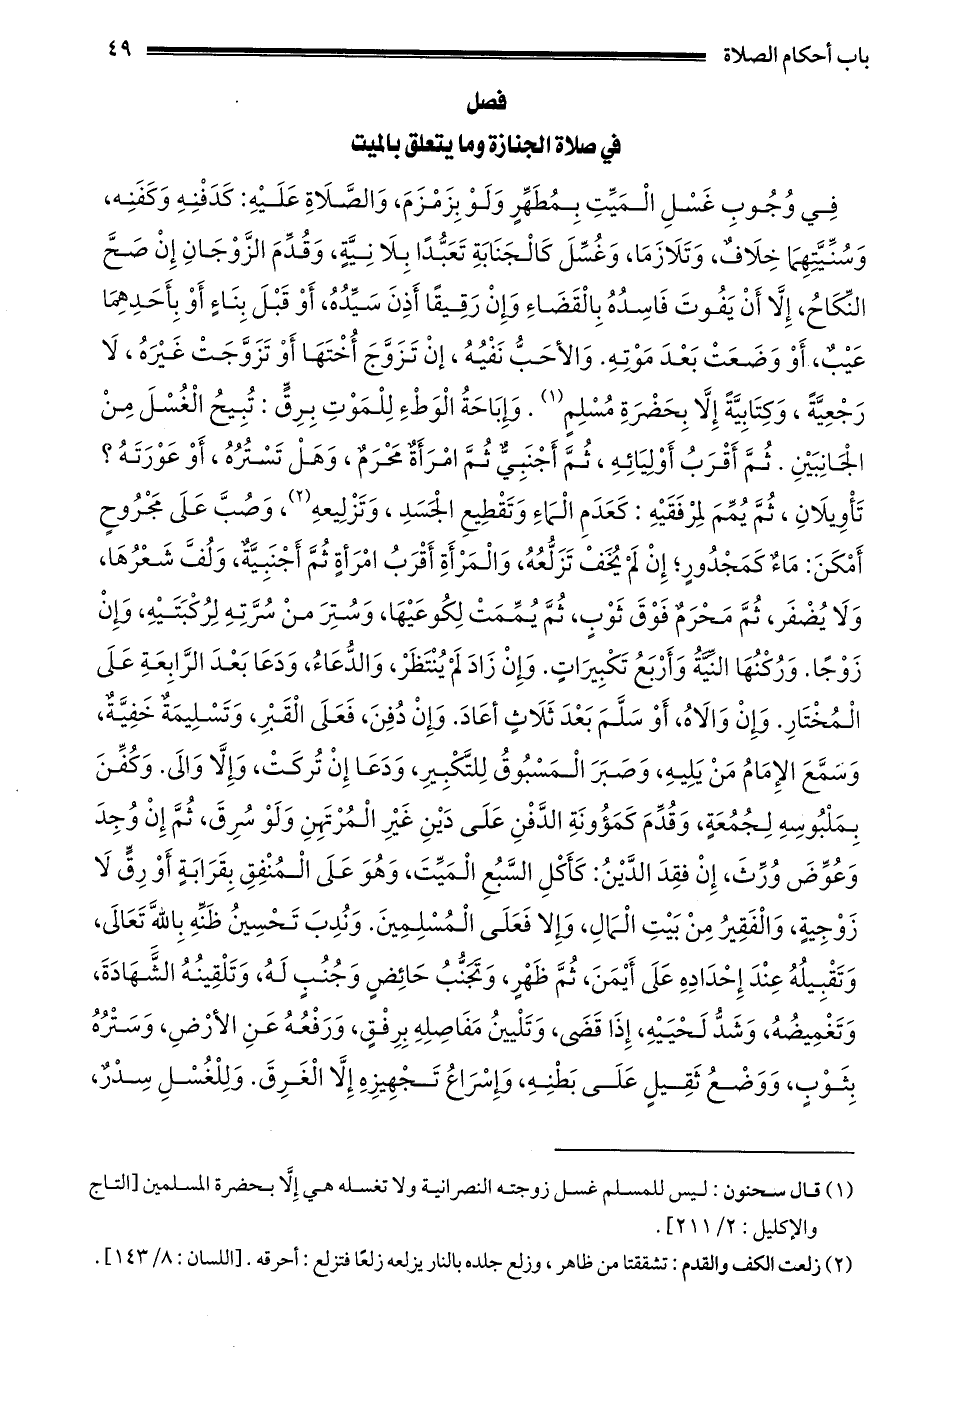 باب أحكام الصلاة ٤٩
فصل
في صلاة الجنازة وما يتعلق بالميت
فِي وُجُوبِ غَسْلِ الْمَيِّتِ بِمُطَهِّرٍ وَلَوْ بِزَمْزَمَ، وَالصَّلَاةِ عَلَيْهِ: كَدَفْنِهِ وَكَفَنِهِ،
وَسُنِّيَّتِهِمَا خِلَافٌ، وَتَلَازَمَا، وَغُسِّلَ كَالْجَنَابَةِ تَعَبُّدًا بِلَا نِيَّةٍ، وَقُدِّمَ الزَّوْجَانِ إِن صَحَّ
النِّكَاحُ، إِلَّا أَنْ يَفُوتَ فَاسِدُهُ بِالْقَضَاءِ وَإِنْ رَقِيقًا أَذِنَ سَيِّدُهُ، أَوْ قَبْلَ بِنَاءٍ أَوْ بِأَحَدِهِمَا
عَيْبٌ، أَوْ وَضَعَتْ بَعْدَ مَوْتِهِ. وَالأَحَبُّ نَفْيُهُ، إِنْ تَزَوَّجَ أُخْتَهَا أَوْ تَزَوَّجَتْ غَيْرَهُ، لَا
رَجْعِيَّةً، وَكِتَابِيَّةً إِلَّا بِحَضْرَةِ مُسْلِمٍ(١). وَإِبَاحَةُ الْوَطْءِ لِلمَوْتِ بِرِقٍّ: تُبِيحُ الْغُسْلَ مِنْ
الجَانِبَيْنِ. ثُمَّ أَقْرَبُ أَوْلِيَائِهِ، ثُمَّ أَجْنَبِيٌّ ثُمَّ امْرَأَةٌ مَحْرَمٌ، وَهَلْ تَسْتُرُهُ، أَوْ عَوْرَتَهُ؟
تَأْوِيلَانِ، ثُمَّ يُمِّمَ لِمِرْفَقَيْهِ: كَعَدَمِ الْمَاءِ وَتَقْطِيعِ الجَسَدِ، وَتَزْلِيعِهِ(٢)، وَصُبَّ عَلَى مَجْرُوحٍ
أَمْكَنَ: مَاءٌ كَمَجْدُورٍ؛ إِنْ لَمْ يُخَفْ تَزَلُّعُهُ، وَالْمَرْأَةِ أَقْرَبُ امْرَأَةٍ ثُمَّ أَجْنَبِيَّةٌ، وَلُفَّ شَعْرُهَا،
وَلَا يُضْفَر، ثُمَّ مَحْرَمٌ فَوْقَ ثَوْبٍ، ثُمَّ يُمِّمَتْ لِكُوعَيْهَا، وَسُتِرَ مِنْ سُرَّتِهِ لِرُكْبَتَيْهِ، وَإِنْ
زَوْجًا. وَرُكْنُهَا النِّيَّةُ وَأَرْبَعُ تَكْبِيرَاتٍ. وَإِنْ زَادَ لَمْ يُنْتَظَرْ، وَالدُّعَاءُ، وَدَعَا بَعْدَ الرَّابِعَةِ عَلَى
الْمُخْتَارِ. وَإِنْ وَالَاهُ، أَوْ سَلَّمَ بَعْدَ ثَلَاثٍ أعَادَ. وَإِنْ دُفِنَ، فَعَلَى الْقَبْرِ، وَتَسْلِيمَةٌ خَفِيَّةٌ،
وَسَمَّعَ الإِمَامُ مَنْ يَلِيهِ، وَصَبَرَ الْمَسْبُوقُ لِلتَّكْبِيرِ، وَدَعَا إِنْ تُرِكَتْ، وَإِلَّا وَالَى. وَكُفِّنَ
بِمَلْبُوسِهِ لِجُمُعَةٍ، وَقُدِّمَ كَمَؤُونَةِ الدَّفْنِ عَلَى دَيْنِ غَيْرِ الْمُرْتَهِنِ وَلَوْ سُرِقَ، ثُمَّ إِنْ وُجِدَ
وَعُوِّضَ وُرِّثَ، إِن فُقِدَ الدَّيْنُ: كَأَكْلِ السَّبُعِ الْمَيِّتَ، وَهُوَ عَلَى الْمُنْفِقِ بِقَرَابَةٍ أَوْ رِقٍّ لَا
زَوْجِيةٍ، وَالْفَقِيرُ مِنْ بَيْتِ الْمَالِ، وَإِلا فَعَلَى الْمُسْلِمِينَ. وَنُدِبَ تَحْسِينُ ظَنِّهِ بِاللهِ تَعَالَى،
وَتَقْبِيلُهُ عِنْدَ إِحْدَادِهِ عَلَى أَيْمَنَ، ثُمَّ ظَهْرٍ، وَتَجَنُّبُ حَائِضٍ وَجُنُبٍ لَهُ، وَتَلْقِينُهُ الشَّهَادَةَ،
وَتَغْمِيضُهُ، وَشَدُّ لَحْيَيْهِ، إِذَا قَضَى، وَتَلْيِينُ مَفَاصِلِهِ بِرِفْقٍ، وَرَفْعُهُ عَنِ الأَرْضِ، وَسَتْرُهُ
بِثَوْبٍ، وَوَضْعُ ثَقِيلٍ عَلَى بَطْنِهِ، وَإِسْرَاعُ تَجْهِيزِهِ إِلَّا الْغَرِقَ. وَلِلْغُسْلِ سِدْرٌ،
(١) قال سحنون: ليس للمسلم غسل زوجته النصرانية ولا تغسله هي إلَّا بحضرة المسلمين [التاج
والإكليل: ٢/ ٢١١].
(٢) زلعت الكف والقدم: تشققتا من ظاهر، وزلع جلده بالنار يزلعه زلعًا فتزلع: أحرقه. [اللسان: ٨/ ١٤٣].